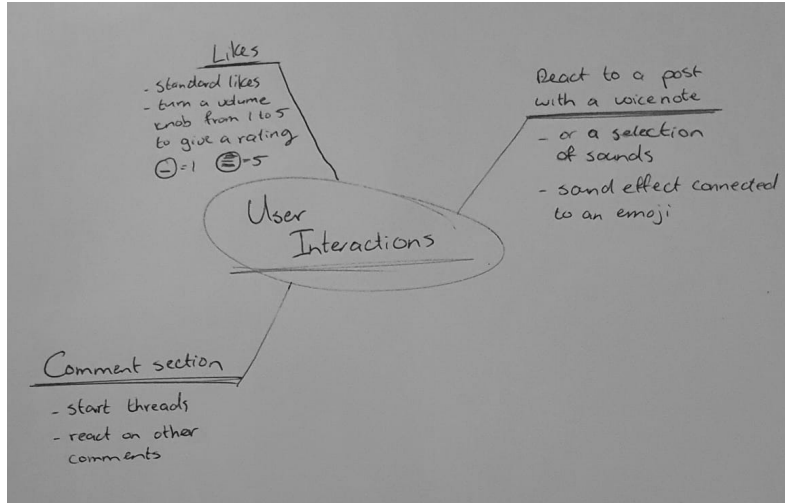 Likes
- standard likes
- turn a volume
knob from 1 to 5
to give a rating
=1 =5
React to a post
with a voicenote
- or a selection
of sounds
- sound effect connected
to an emoji
User
Interactions
Comment section
- start threads
- react on other
comments